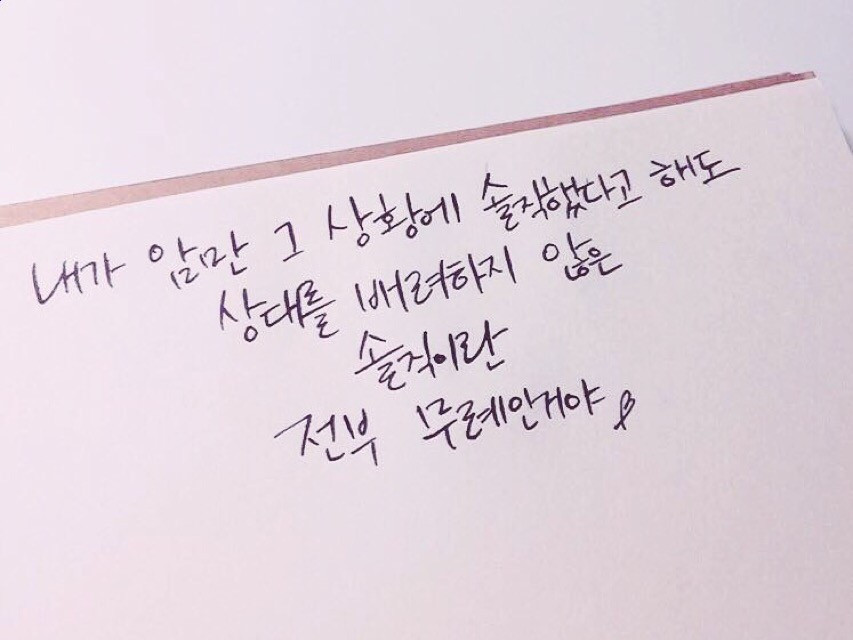 내가 암만 그 상황에 솔직했다고 해도
상대를 배려하지 않은
솔직이란
전부 무례인거야